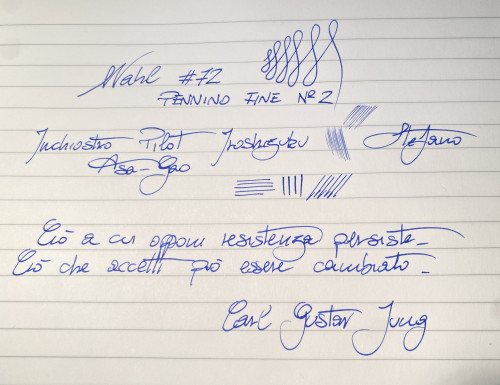 Wahl #72
PENNINO FINE Nº2
Inchiostro Pilot Iroshizuku Stefano
Asa-Gao
Ciò a cui opponi resistenza persiste_
Ciò che accetti può essere cambiato_
Carl Gustav Jung